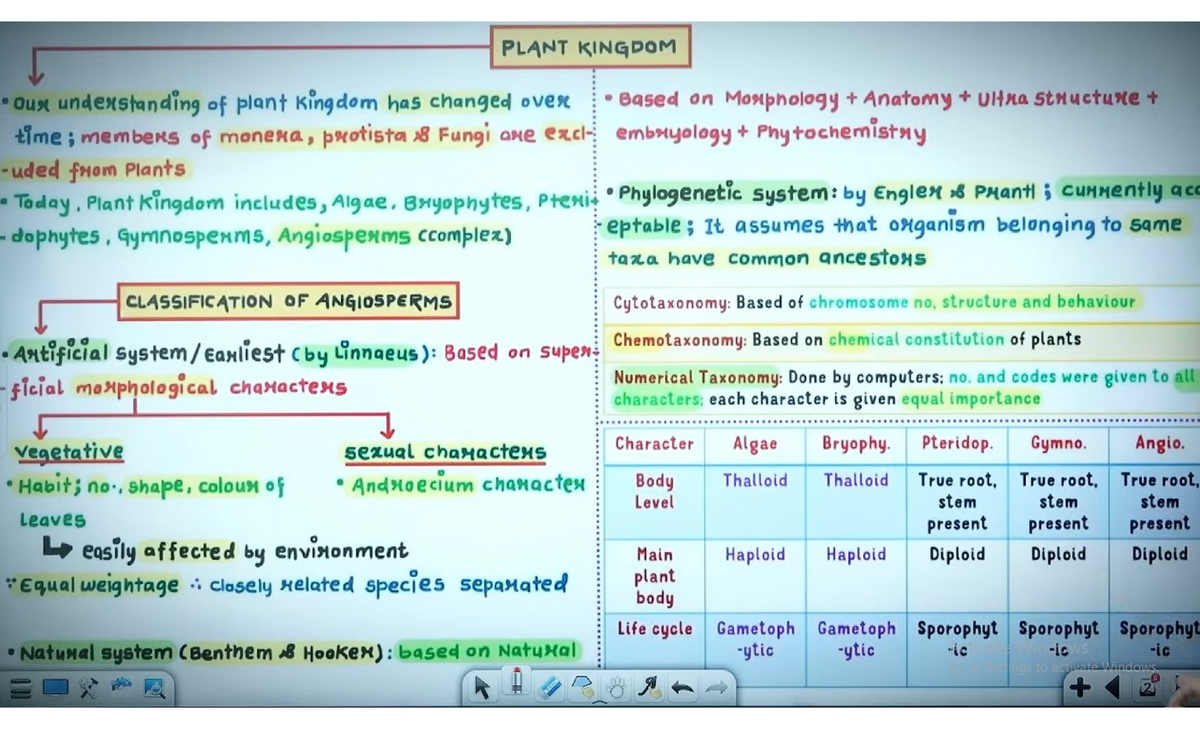 PLANT KINGDOM
• Our understanding of plant Kingdom has changed over
time; members of monera, protista & Fungi are excl-
-uded from Plants
• Today, Plant Kingdom includes, Algae, Bryophytes, Pteri-
-dophytes, Gymnosperms, Angiosperms (complex)
CLASSIFICATION OF ANGIOSPERMS
• Artificial system/Earliest (by Linnaeus): Based on super-
-ficial morphological characters
vegetative
• Habit; no., shape, colour of
leaves
easily affected by environment
∵ Equal weightage ∴ closely related species separated
sexual characters
• Androecium character
• Natural system (Benthem & Hooker): based on Natural
• Based on Morphology + Anatomy + Ultra structure +
embryology + Phytochemistry
• Phylogenetic system: by Engler & Prantl; currently acc
-eptable; It assumes that organism belonging to same
taxa have common ancestors
Cytotaxonomy: Based of chromosome no, structure and behaviour
Chemotaxonomy: Based on chemical constitution of plants
Numerical Taxonomy: Done by computers; no. and codes were given to all
characters; each character is given equal importance
Character Algae Bryophy. Pteridop. Gymno. Angio.
Body Level Thalloid Thalloid True root, stem present True root, stem present True root, stem present
Main plant body Haploid Haploid Diploid Diploid Diploid
Life cycle Gametoph -ytic Gametoph -ytic Sporophyt -ic Sporophyt -ic Sporophyt -ic
settings to activate Windows
2